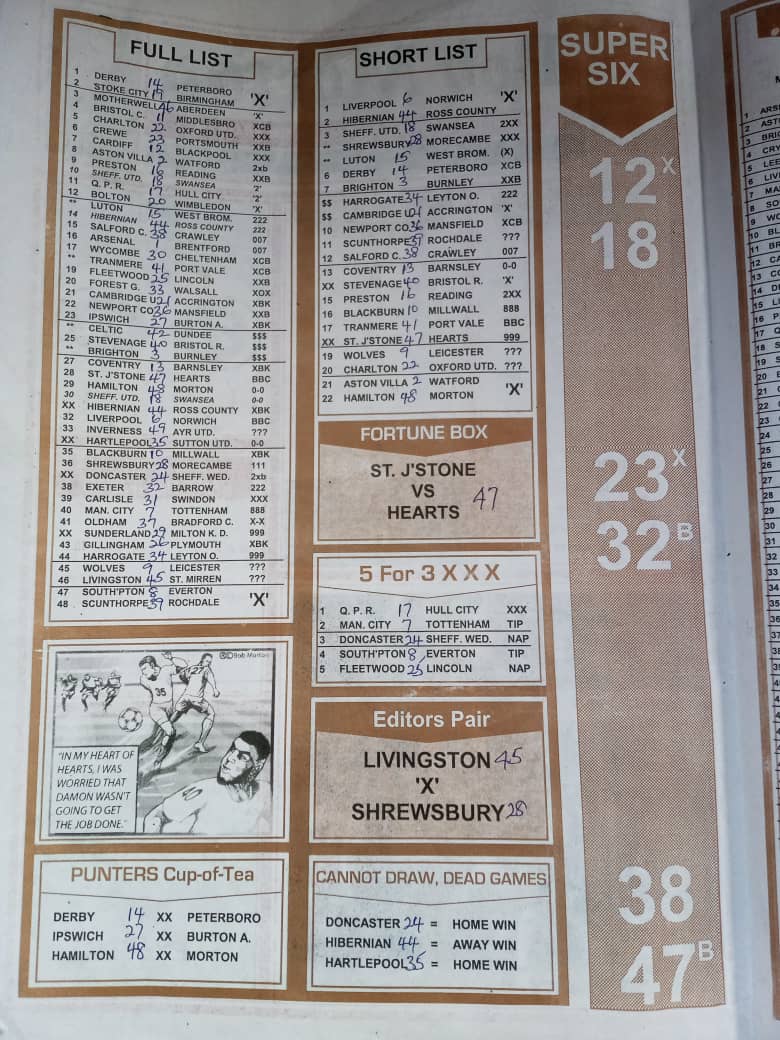 FULL LIST
1 DERBY 14 PETERBORO 'X'
2 STOKE CITY 19 BIRMINGHAM
3 MOTHERWELL 46 ABERDEEN 'X'
4 BRISTOL C. 11 MIDDLESBRO XCB
5 CHARLTON 22 OXFORD UTD. XXX
6 CREWE 23 PORTSMOUTH XXB
7 CARDIFF 12 BLACKPOOL XXX
8 ASTON VILLA 2 WATFORD 2xb
9 PRESTON 16 READING XXB
10 SHEFF. UTD. 18 SWANSEA '2'
11 Q. P. R. 17 HULL CITY '2'
12 BOLTON 20 WIMBLEDON 'X'
** LUTON 15 WEST BROM. 222
14 HIBERNIAN 44 ROSS COUNTY 222
15 SALFORD C. 38 CRAWLEY 007
16 ARSENAL 1 BRENTFORD 007
17 WYCOMBE 30 CHELTENHAM XCB
** TRANMERE 41 PORT VALE XCB
19 FLEETWOOD 25 LINCOLN XXB
20 FOREST G. 33 WALSALL XOX
21 CAMBRIDGE U 21 ACCRINGTON XBK
22 NEWPORT CO 36 MANSFIELD XXB
23 IPSWICH 27 BURTON A. XBK
** CELTIC 42 DUNDEE $$$
25 STEVENAGE 40 BRISTOL R. $$$
** BRIGHTON 3 BURNLEY $$$
27 COVENTRY 13 BARNSLEY XBK
28 ST. J'STONE 47 HEARTS BBC
29 HAMILTON 48 MORTON 0-0
30 SHEFF. UTD. 18 SWANSEA 0-0
XX HIBERNIAN 44 ROSS COUNTY XBK
32 LIVERPOOL 6 NORWICH BBC
33 INVERNESS 49 AYR UTD. ???
XX HARTLEPOOL 35 SUTTON UTD. 0-0
35 BLACKBURN 10 MILLWALL XBK
36 SHREWSBURY 28 MORECAMBE 111
XX DONCASTER 24 SHEFF. WED. 2xb
38 EXETER 32 BARROW 222
39 CARLISLE 31 SWINDON XXX
40 MAN. CITY 7 TOTTENHAM 888
41 OLDHAM 37 BRADFORD C. X-X
XX SUNDERLAND 29 MILTON K. D. 999
43 GILLINGHAM 26 PLYMOUTH XBK
44 HARROGATE 34 LEYTON O. 999
45 WOLVES 9 LEICESTER ???
46 LIVINGSTON 45 ST. MIRREN ???
47 SOUTH'PTON 8 EVERTON 'X'
48 SCUNTHORPE 39 ROCHDALE
©Bob Morton
35
27
"IN MY HEART OF
HEARTS, I WAS
WORRIED THAT
DAMON WASN'T
GOING TO GET
THE JOB DONE."
PUNTERS Cup-of-Tea
DERBY 14 XX PETERBORO
IPSWICH 27 XX BURTON A.
HAMILTON 48 XX MORTON
SHORT LIST
1 LIVERPOOL 6 NORWICH 'X'
2 HIBERNIAN 44 ROSS COUNTY
3 SHEFF. UTD. 18 SWANSEA 2XX
** SHREWSBURY 28 MORECAMBE XXX
** LUTON 15 WEST BROM. (X)
6 DERBY 14 PETERBORO XCB
7 BRIGHTON 3 BURNLEY XXB
$$ HARROGATE 34 LEYTON O. 222
$$ CAMBRIDGE U 21 ACCRINGTON 'X'
10 NEWPORT CO 36 MANSFIELD XCB
11 SCUNTHORPE 39 ROCHDALE ???
12 SALFORD C. 38 CRAWLEY 007
13 COVENTRY 13 BARNSLEY 0-0
XX STEVENAGE 40 BRISTOL R. 'X'
15 PRESTON 16 READING 2XX
16 BLACKBURN 10 MILLWALL 888
17 TRANMERE 41 PORT VALE BBC
XX ST. J'STONE 47 HEARTS 999
19 WOLVES 9 LEICESTER ???
20 CHARLTON 22 OXFORD UTD. ???
21 ASTON VILLA 2 WATFORD 'X'
22 HAMILTON 48 MORTON
FORTUNE BOX
ST. J'STONE
VS 47
HEARTS
5 For 3 X X X
1 Q. P. R. 17 HULL CITY XXX
2 MAN. CITY 7 TOTTENHAM TIP
3 DONCASTER 24 SHEFF. WED. NAP
4 SOUTH'PTON 8 EVERTON TIP
5 FLEETWOOD 25 LINCOLN NAP
Editors Pair
LIVINGSTON 45
'X'
SHREWSBURY 28
CANNOT DRAW, DEAD GAMES
DONCASTER 24 = HOME WIN
HIBERNIAN 44 = AWAY WIN
HARTLEPOOL 35 = HOME WIN
SUPER
SIX
12 X
18
23 X
32 B
38
47 B